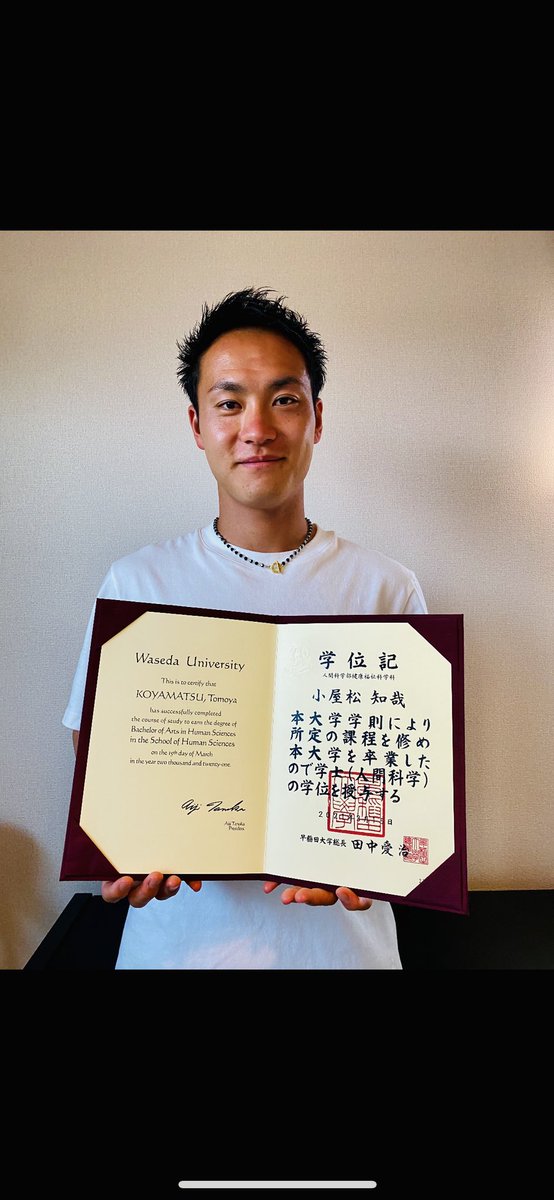 Waseda University
This is to certify that
KOYAMATSU, Tomoya
has successfully completed
the course of study to earn the degree of
Bachelor of Arts in Human Sciences
in the School of Human Sciences
on the 19th day of March
in the year two thousand and twenty-one.
Aiji Tanaka
President
学位記
人間科学部健康福祉科学科
小屋松 知哉
本大学学則により
所定の課程を修め
本大学を卒業した
ので学士(人間科学)
の学位を授与する
日
早稲田大学総長 田中愛治